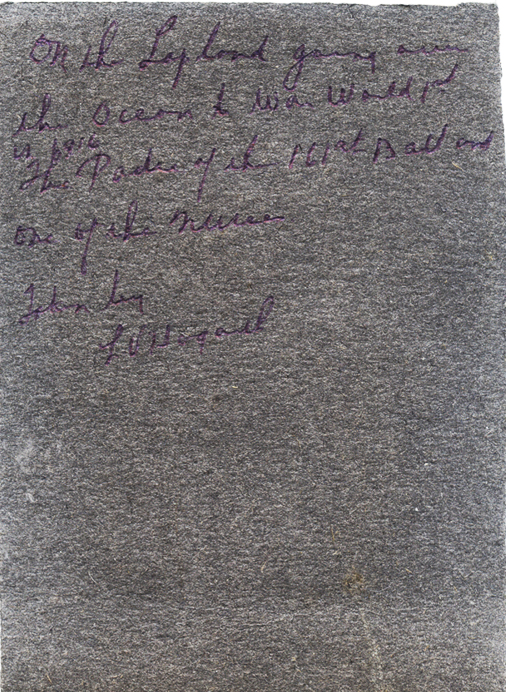 On the Lapland going over
the Ocean to War World 1st
in 1916
The Padre of the 161st Batt and
one of the nurses
Taken by